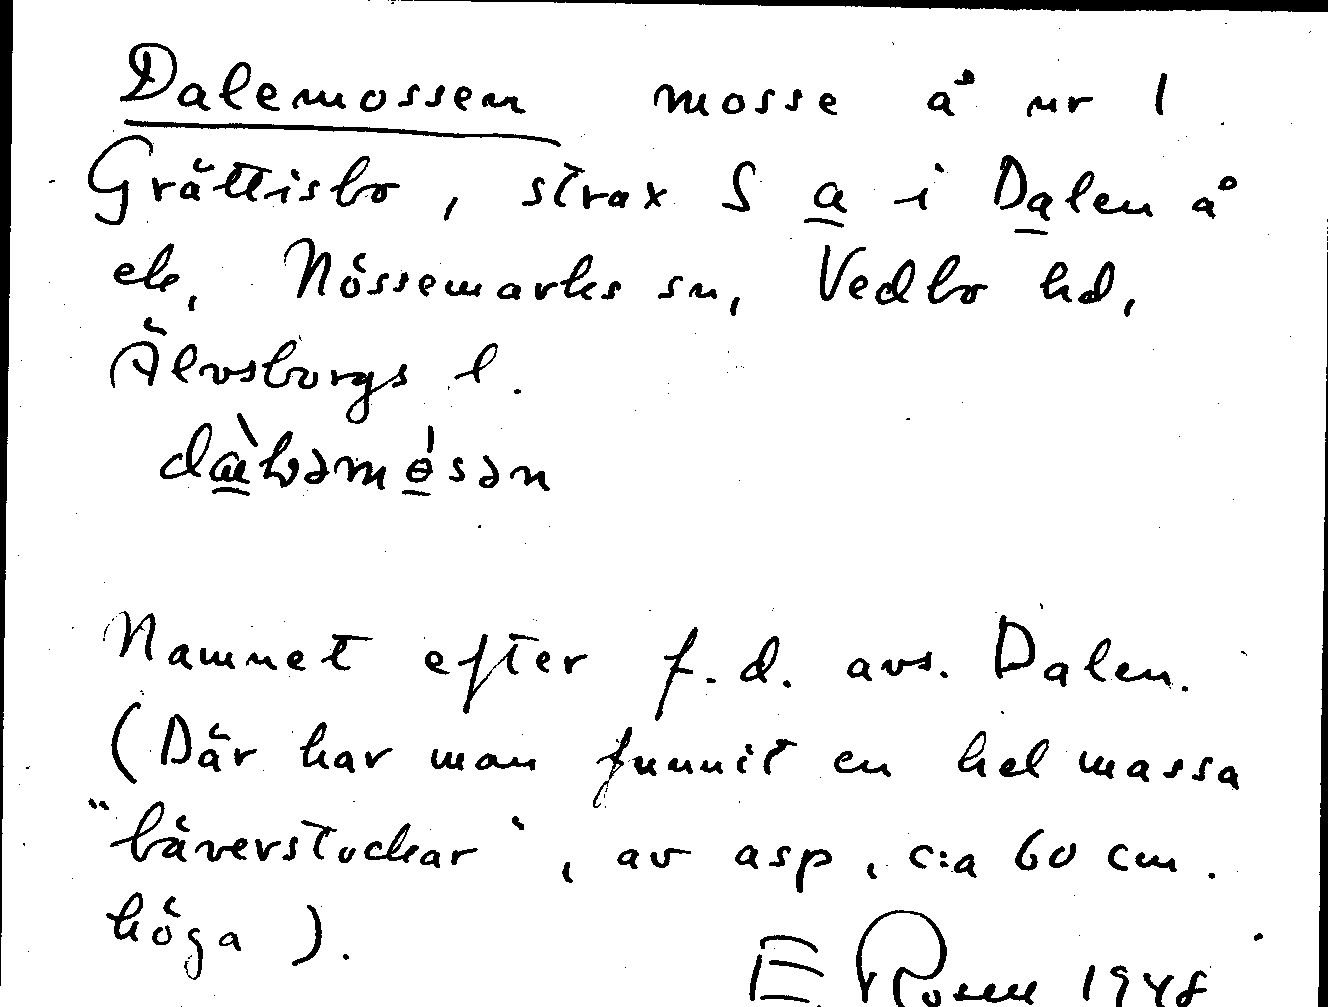 Dalemossen mosse å nr 1
Grättisbo, strax S a i Dalen å
ek, Nössemarks sn, Vedbo hd,
Älvsborgs l.
Namnet efter f.d. avs. Dalen.
(Där har man funnit en hel massa
"bäverstockar", av asp, c:a 60 cm.
höga).
E Rosen 1948